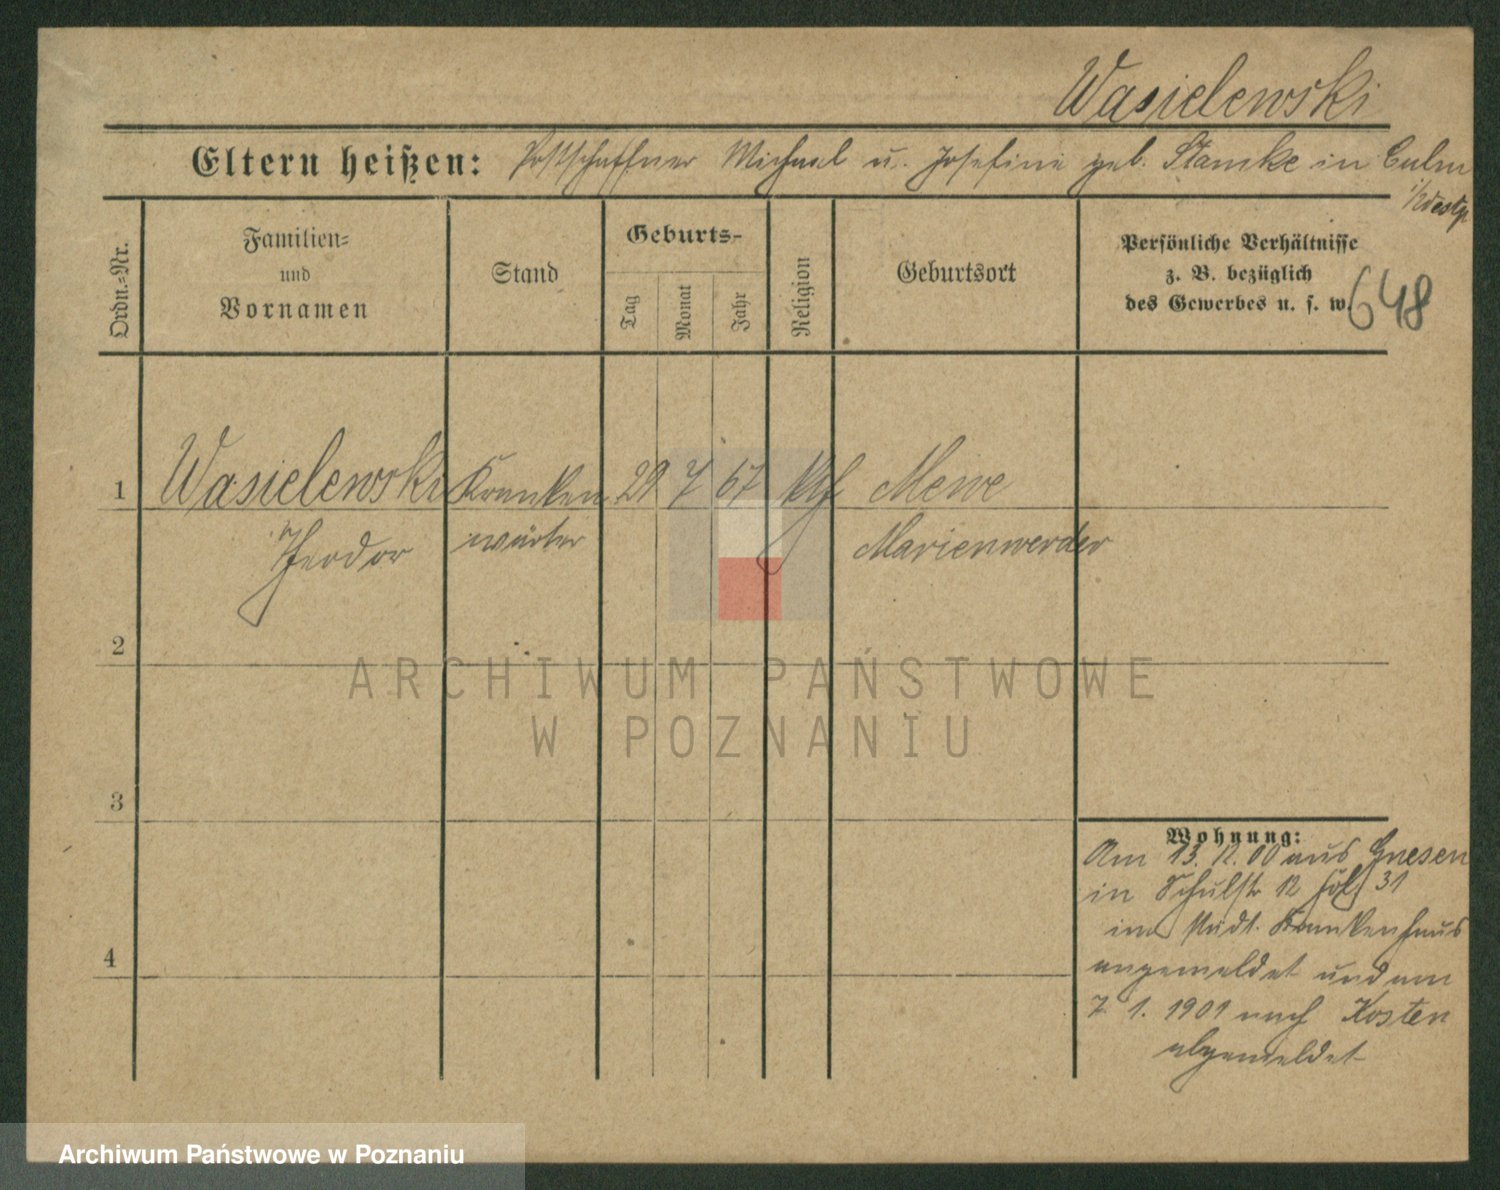 Wasielewski
Eltern heißen: Postschaffner Michael u. Josefine geb. Stamke in Culm
i/Westp
Ordn.=Nr.
Familien=
und
Vornamen
Stand
Geburts=
Tag
Monat
Jahr
Religion
Geburtsort
Persönliche Verhältnisse
z. B. bezüglich
des Gewerbes u. s. w.
648
1 Wasielewski Kranken 29 7 67 Mewe
Theodor wärter Marienwerder
2
3
4
Wohnung:
Am 13. 12. 00 aus Gnesen
in Schulstr 12 31
im städt. Krankenhaus
angemeldet und am
7. 1. 1901 nach Kosten
abgemeldet
ARCHIWUM PAŃSTWOWE
W POZNANIU
Archiwum Państwowe w Poznaniu